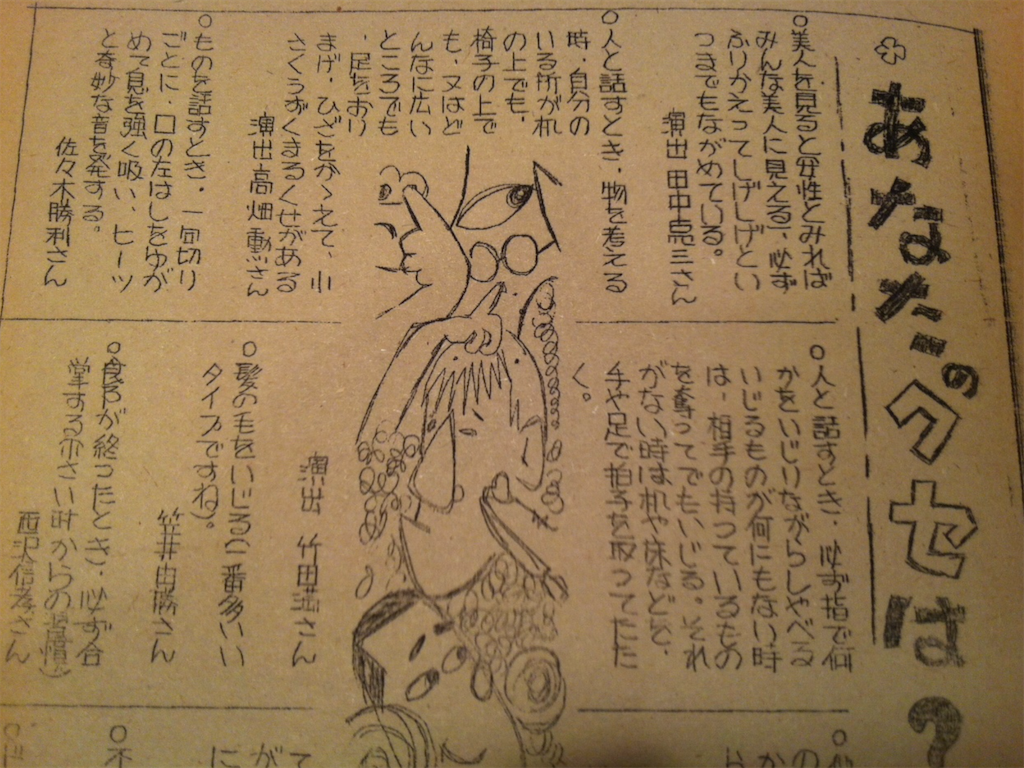 あなたのクセは?
○美人を見ると(女性とみれば
みんな美人に見える)、必ず
ふりかえってしげしげとい
つまでもながめている。
演出 田中亮三さん
○人と話すとき、物を考える
時、自分の
いる所がれ
の上でも、
椅子の上で
も、又はど
んなに広い
ところでも
足をおり
まげ、ひざをかゝえて、小
さくうずくまるくせがある
演出 高畑 勲さん
○ものを話すとき、一句切り
ごとに、口の左はしをゆが
めて息を強く吸い、ヒーッ
と奇妙な音を発する。
佐々木勝利さん
○人と話すとき、必ず指で何
かをいじりながらしゃべる
いじるものが何にもない時
は、相手の持っているもの
を奪ってでもいじる。それ
がない時は机や床などを、
手や足で拍子を取ってたた
く。
演出 竹田 さん
○髪の毛をいじる(一番多いい
タイプですね)。
笠井由勝さん
○食事が終ったとき、必ず合
掌する(小さい時からの習慣)
西沢信孝さん